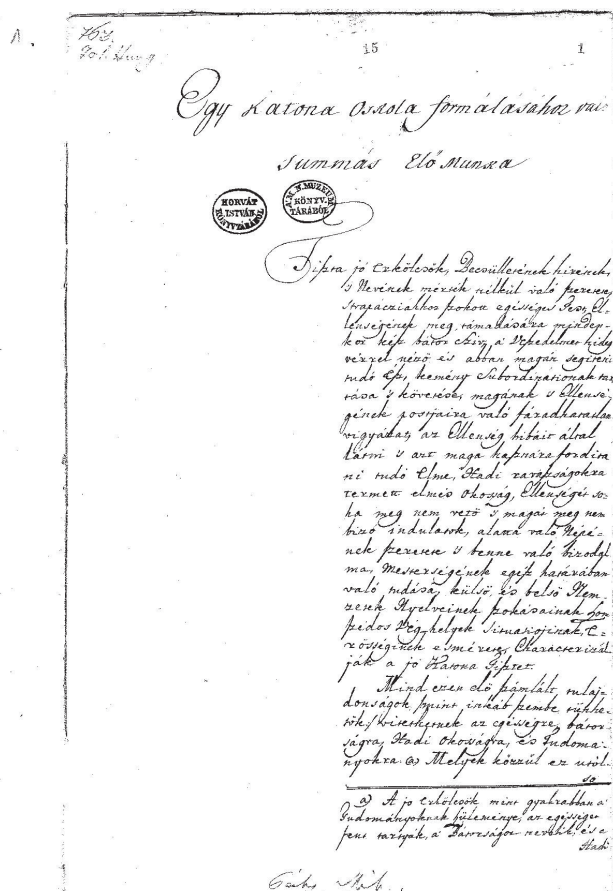 1.
763.
Fol. Hung
15 1
Egy Katona Oskola formálásához való
Summás Elő Munka
HORVÁT
ISTVÁN
KÖNYVTÁRÁBÓL
A. M. N. MUZEUM
KÖNYV-
TÁRÁBÓL
Tiszta jó Erkölcsök, Becsülletének hirének,
's Nevének mérték nélkül való szeretete,
strapácziákhoz szokott egésséges Test, El-
lenségének meg támadására minden-
kor kész bátor Sziv, a Veszedelmet hideg
vérrel néző és abban magán segiteni
tudó Ész, kemény Subordinationak tar
tása 's követése, magának 's Ellensé-
gének postjaira való fáradhatatlan
vigyázat, az Ellenség hibáit által
látni 's azt maga hasznára fordita
ni tudó Elme, Hadi ravaszságokra
termett elmés Okosság, Ellenségét so-
ha meg nem vető 's magát meg nem
bizó indulatok, alatta való Népé-
nek szeretete 's benne való bizodal
ma, Mesterségének egész határában
való tudása, külső, és belső Nem-
zetek Nyelveinek szokásainak Szom
szédos Vég-helyek Situatiojinak, E-
rősséginek esmérete, Characterizál
ják a jó Katona Tisztet.
Mind ezen elő számlált tulaj-
donságok mint, inkább szembe tünhe-
tők, vitethetnek az egésségre, bátor-
ságra, Hadi Okosságra, és Tudomá-
nyokra. a) Melyek közzül ez utól-
so
a) A jó Erkölcsök mint gyakrabban a
Tudományoknak szüleménye, az egésséget
fent tartyák, a Bátorságot nevelik, és a
Hadi